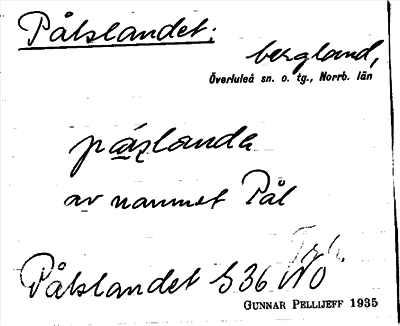 Pålslandet:
bergland,
Överluleå sn. o. tg., Norrb. län
av namnet Pål
Pålslandet S 36 NO
GUNNAR PELLIJEFF 1935